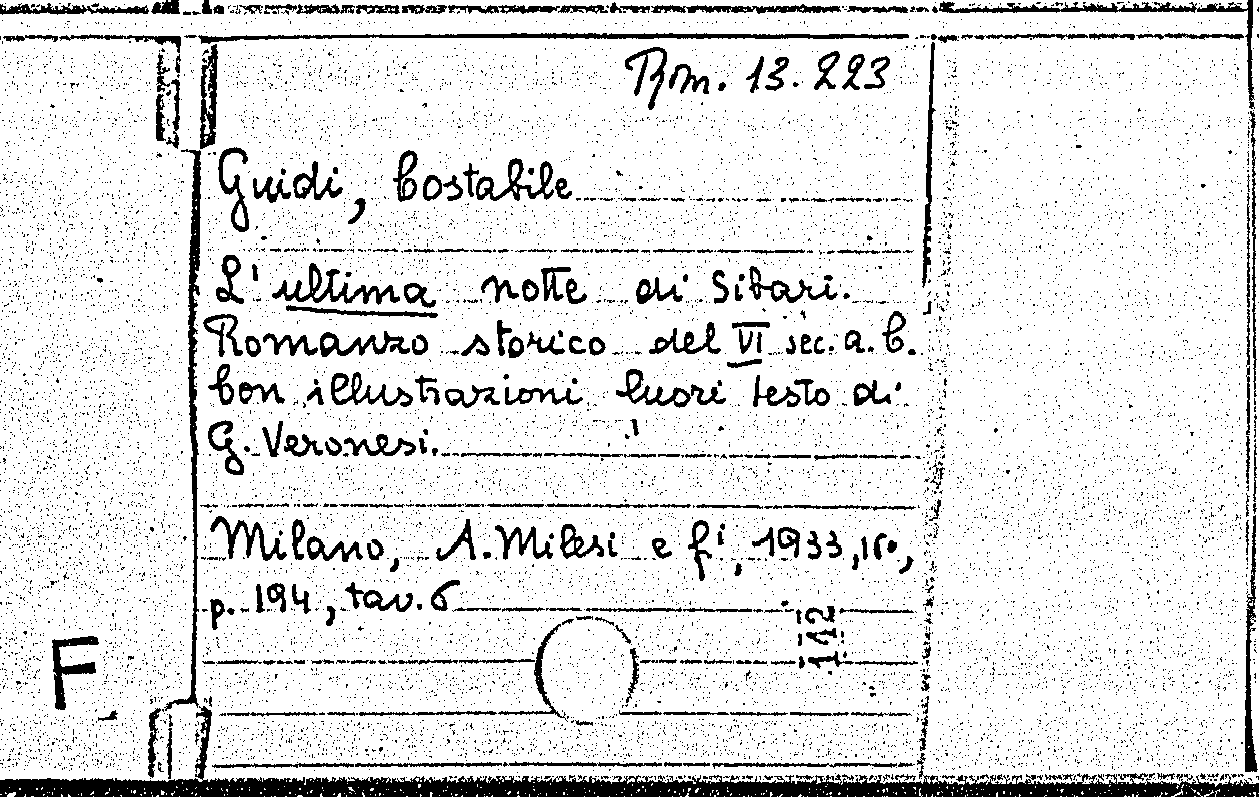 Rom. 13.223
Guidi, Costabile
L'ultima notte di Sibari.
Romanzo storico del VI sec. a. C.
Con illustrazioni fuori testo di
G. Veronesi.
Milano, A. Milesi e fi, 1933, 16°,
p. 194, tav. 6
142
F